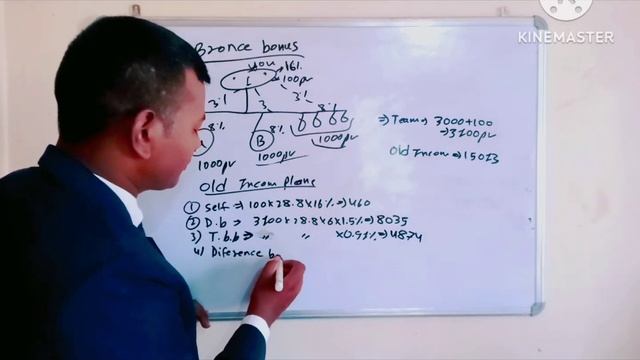 KINEMASTER
Bronce bonus
you
16%
L
100pv
3%
3
3%
8%
8%
B
8%
1000pv
1000pv
1000pv
⇒ Team → 3000+100
→3100pv
Old Incom → 15013
Old Incom plans
① Self → 100×28.8×16% → 460
② D.b ⇒ 3100×28.8×6×1.5% → 8035
3) T.b.b ⇒ " " ×0.91% → 4874
4/ Diference b